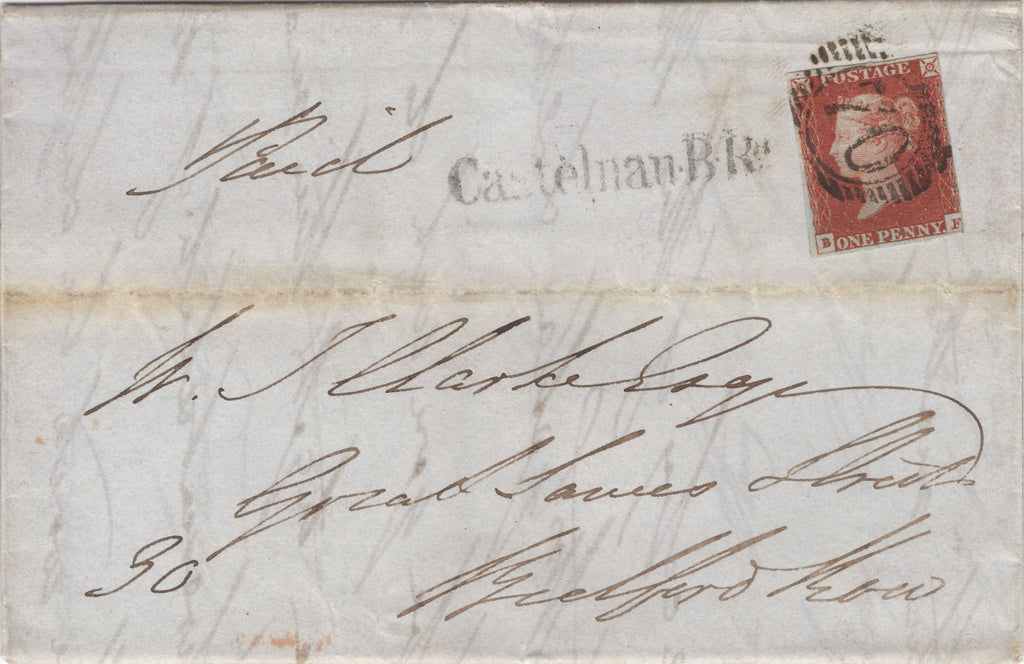 Paid
Castelnau.B.Rd
POSTAGE
ONE PENNY
B F
W. J Clarke Esqr
Great James Street
30 Bedford Row